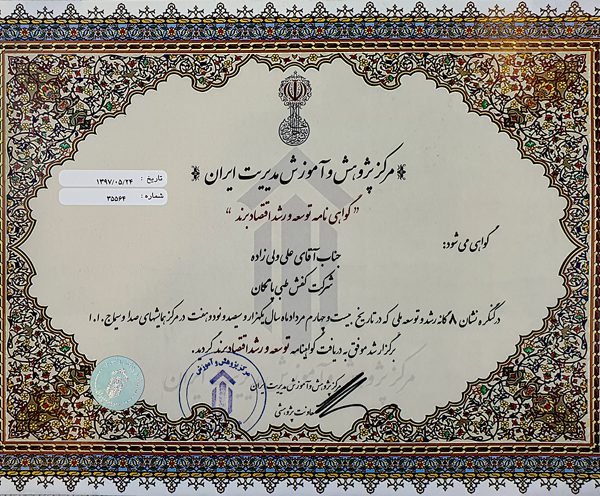 مرکز پژوهش و آموزش مدیریت ایران
تاریخ : ۱۳۹۷/۰۵/۲۴
شماره : ۳۵۵۶۴
"گواهی نامه توسعه و رشد اقتصاد برند"
گواهی می شود:
جناب آقای علی ولی زاده
شرکت کفش طبی پامکان
در کنگره نشان ۸ گانه رشد و توسعه ملی که در تاریخ بیست و چهارم مرداد ماه سال یکهزار و سیصد و نود و هفت در مرکز همایشهای صدا و سیما ج.ا.ا
برگزار شد موفق به دریافت گواهینامه توسعه و رشد اقتصاد برند گردید.
مرکز پژوهش و آموزش مدیریت ایران
معاونت پژوهشی
مرکز پژوهش و آموزش
مرکز پژوهش و آموزش مدیریت ایران